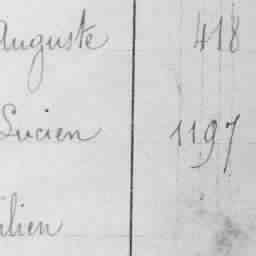 Auguste 418
Lucien 1197